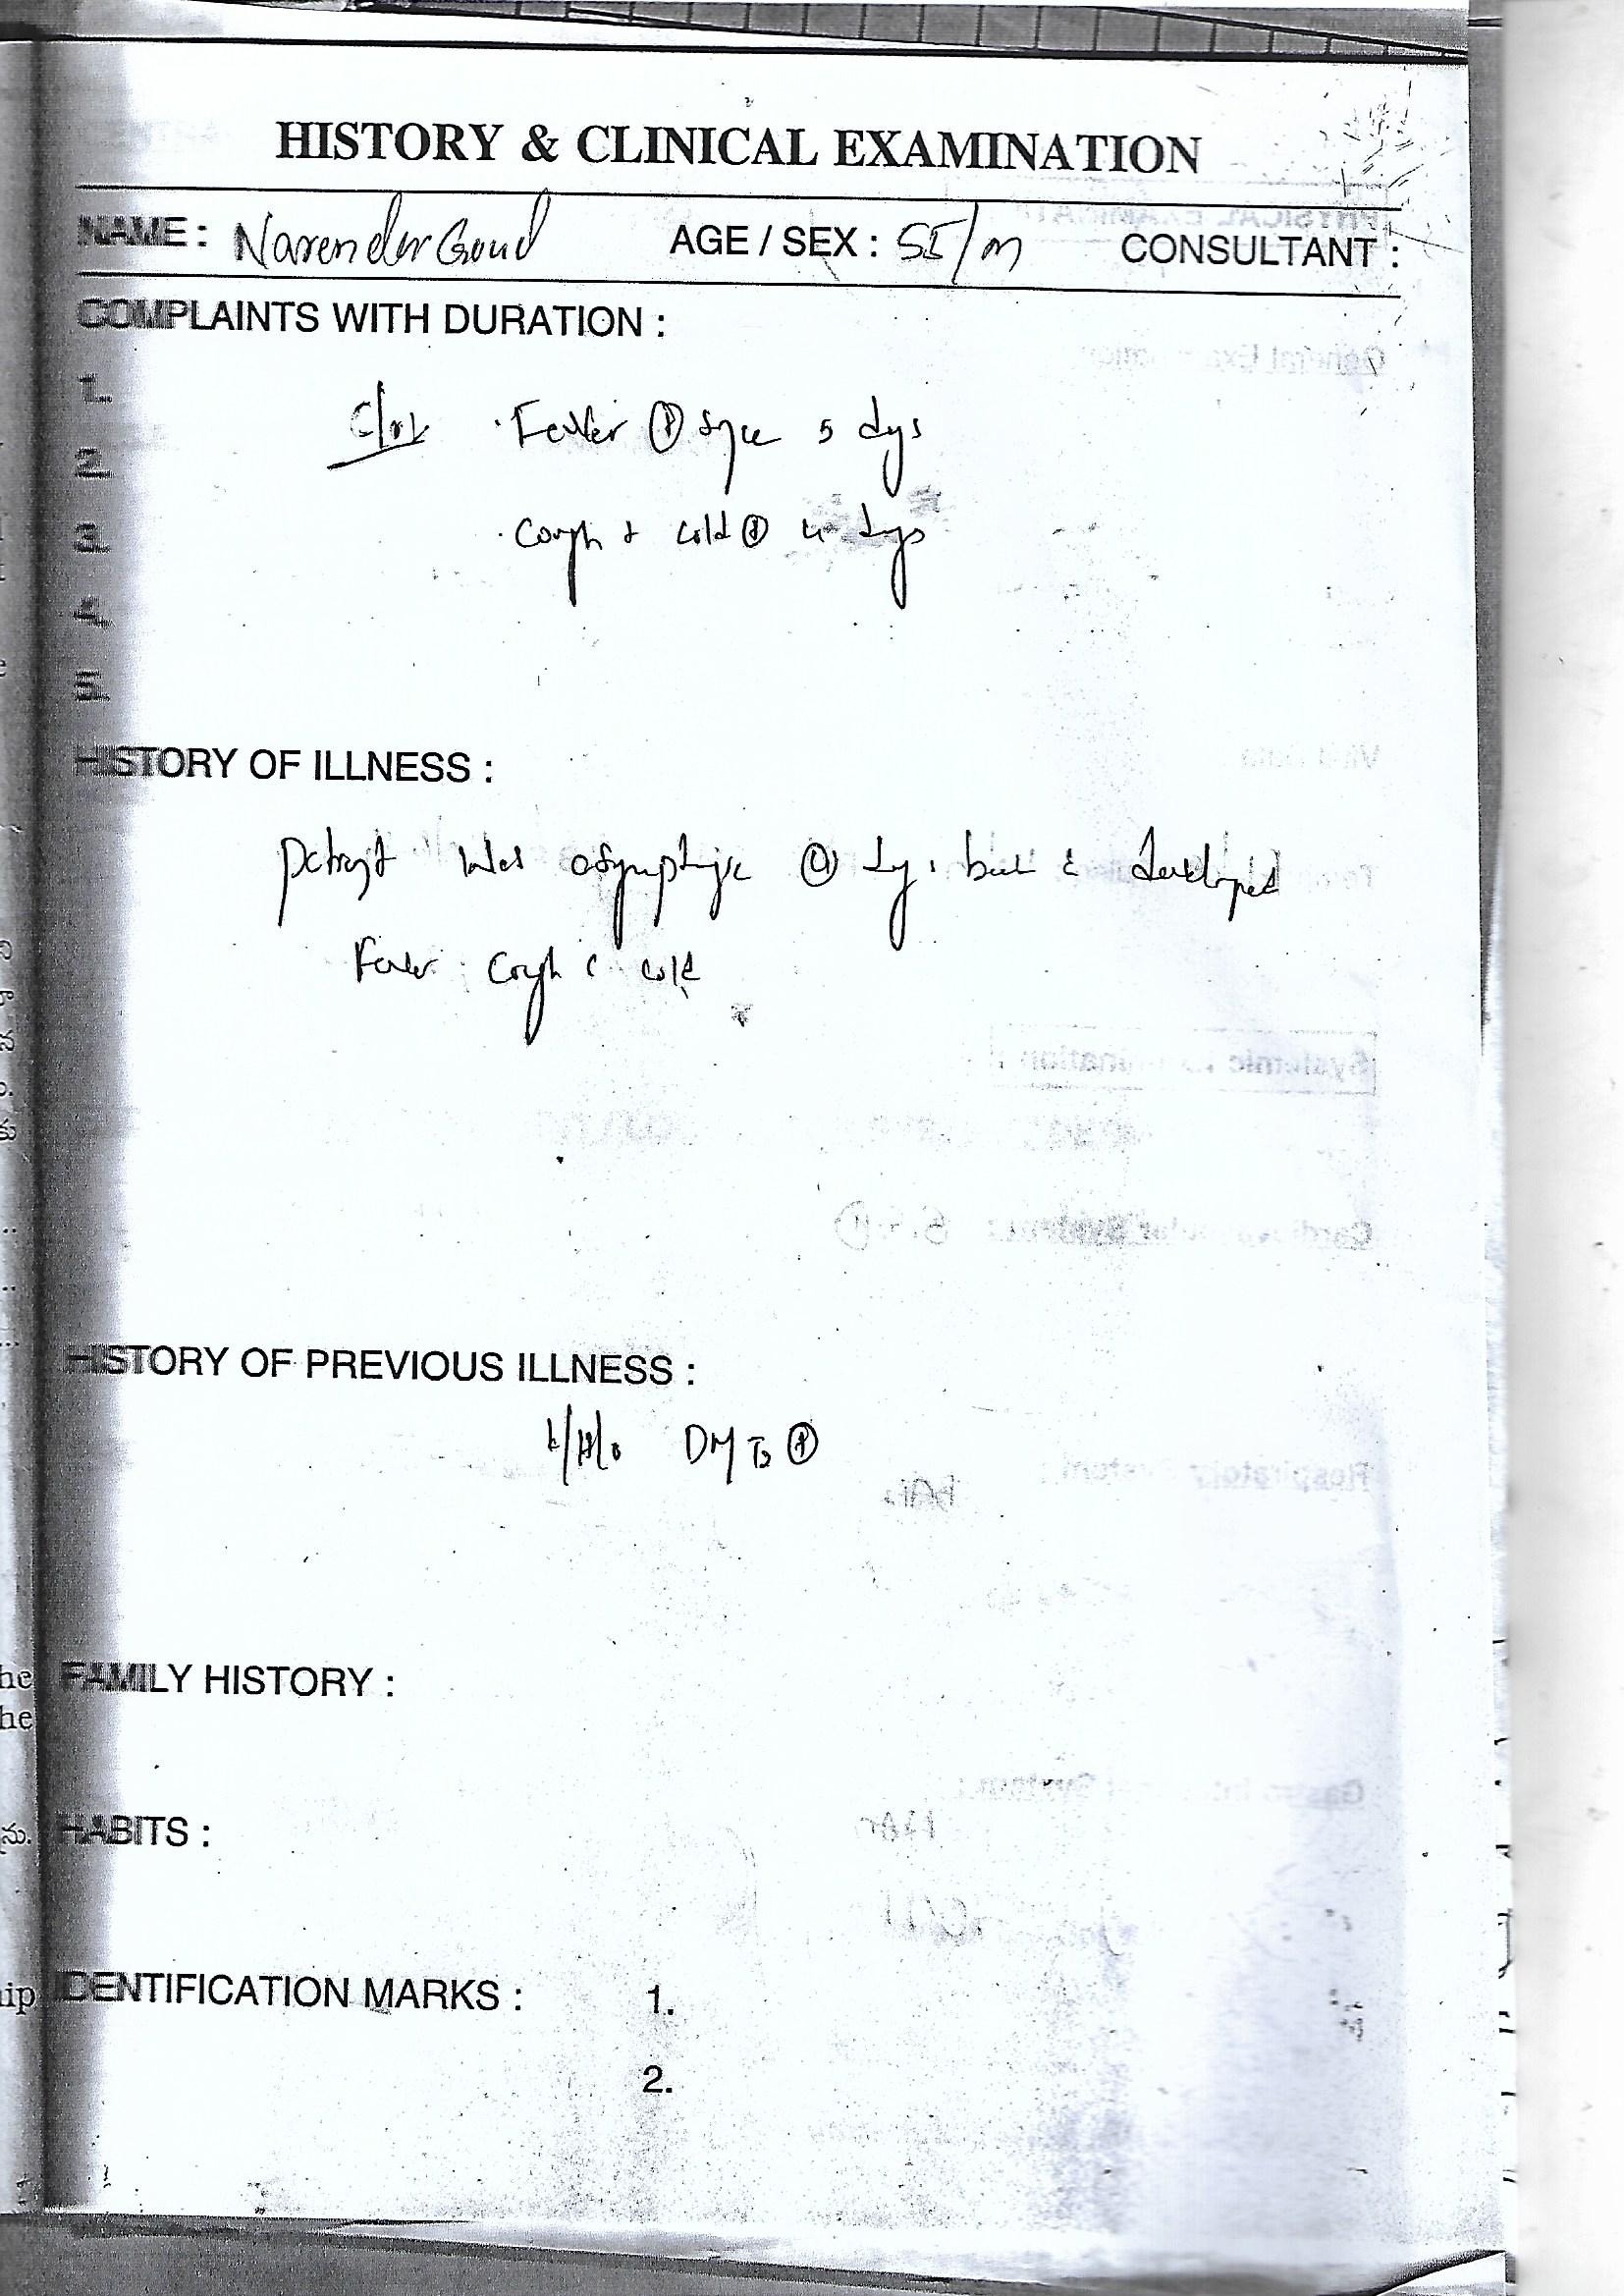 HISTORY & CLINICAL EXAMINATION
NAME : Narender Goud AGE / SEX : 51/m CONSULTANT :
COMPLAINTS WITH DURATION :
1.
2.
3.
4.
5.
. Fever since 5 dys
. Cough & cold 4 dys
HISTORY OF ILLNESS :
was dys back & developed
Fever Cough c cold
HISTORY OF PREVIOUS ILLNESS :
k/H/o DM T2
FAMILY HISTORY :
HABITS :
IDENTIFICATION MARKS : 1.
2.